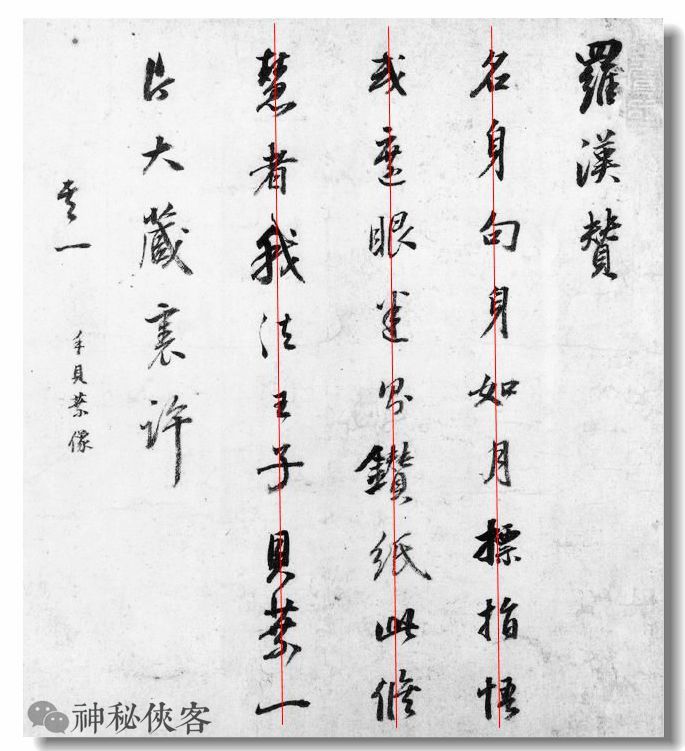 羅漢贊
名身句身如月標指悟
或遮眼迷鑽紙此修
慧者我法王子貝葉一
片大藏裏許
一
手貝葉像
神秘俠客